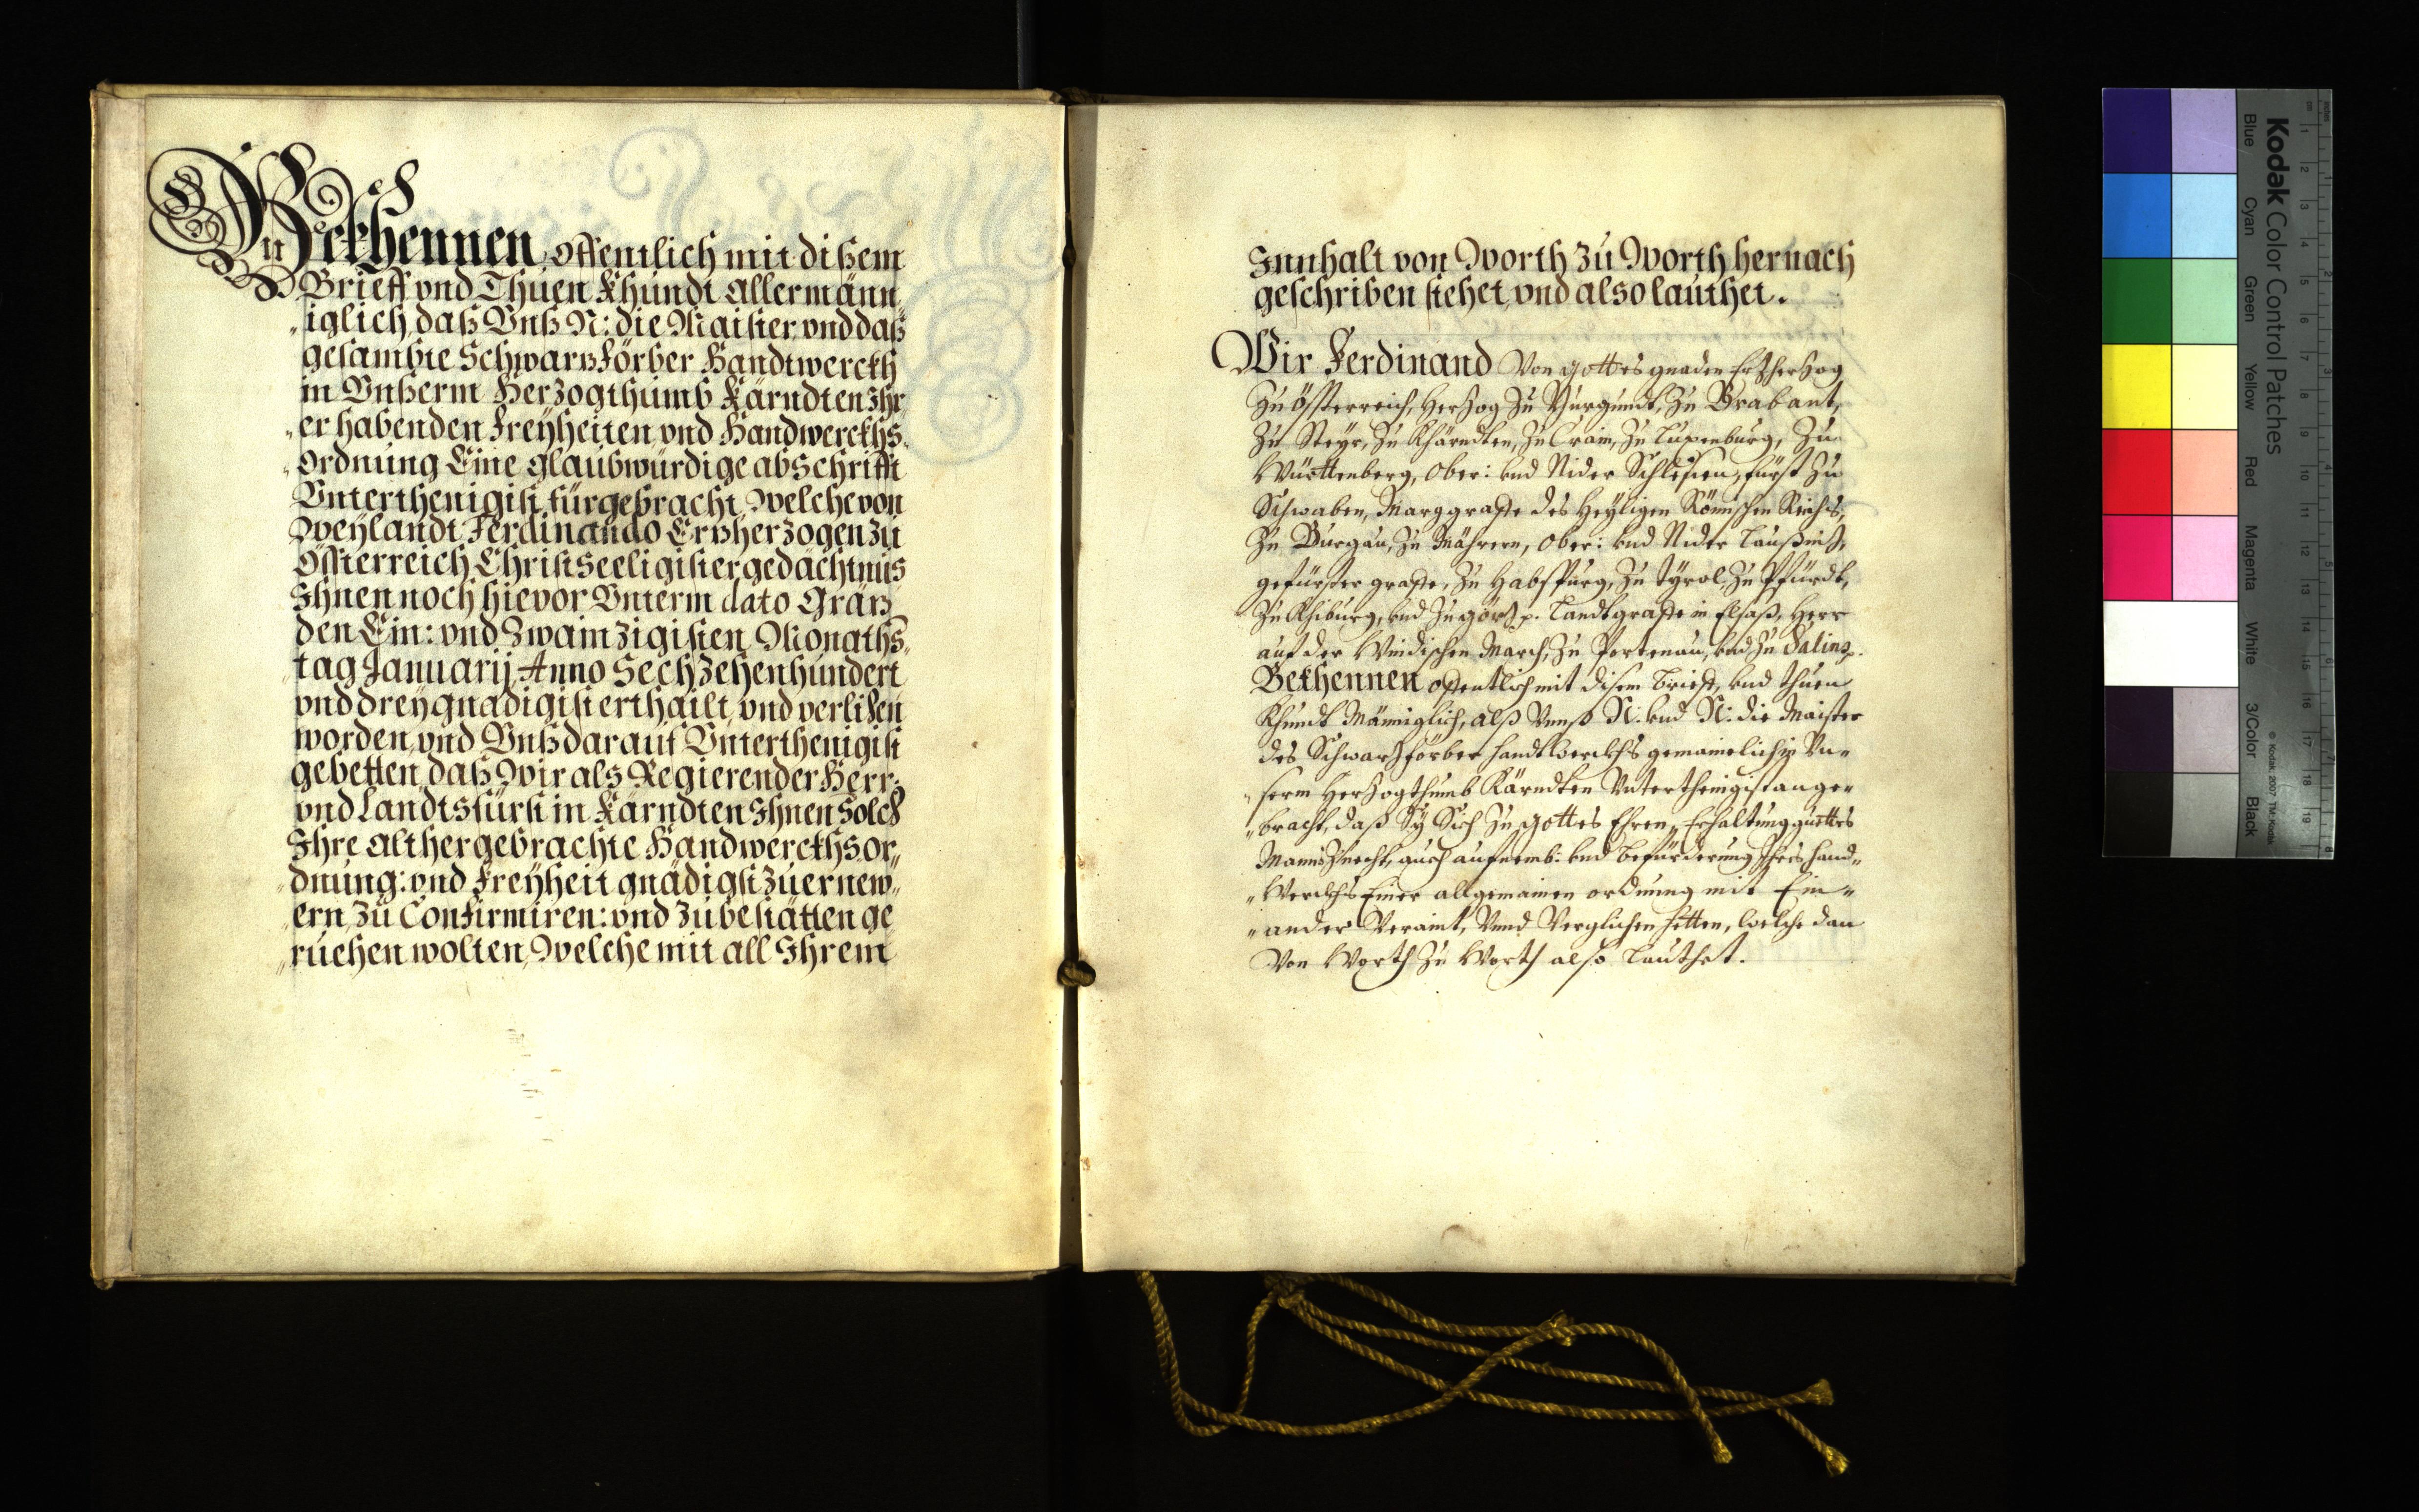 Bekhennen offentlich mit dißem
Brieff vnd Thuen Khundt Allermänn„
„iglich, daß Vnß N: die Maister, vnd daß
gesambte Schwarzförber Handtwerckh
in Vnßerm Herzogthumb Kärndten Ihr„
„er habenden Freÿheiten, vnd Handwerckhs„
„Ordnung Eine glaubwürdige abschrifft
Vnterthenigist fürgebracht, Welche von
Weÿlandt Ferdinando Erzherzogen zu
Össterreich Christseeligister gedächtnus
Ihnen noch hievor Vnterm dato Gräz
den Ein: vnd Zwainzigisten Monaths„
„tag Januarij Anno Sechzehenhundert
vnd dreÿ gnädigist erthailt, vnd verlihen
worden, vnd Vnß darauf Vnterthenigist
gebetten, daß Wir als Regierender Herr:
vnd Landtsfürst in Kärndten Ihnen Solch
Ihre Althergebrachte Handwerckhsor„
„dnung: vnd Freÿheit gnädigst zuernew„
„ern, zu Confirmiren: vnd zu bestätten ge„
„ruehen wolten, Welche mit all Ihrem
Innhalt von Worth zu Worth hernach
geschriben stehet, vnd also lauthet.
Wir Ferdinand Von gottes gnaden Erzherzog
zu Össterreich, Herzog zu Burgundt, zu Brabant,
zu Steÿr, zu Khärndten, zu Crain, zu Luzenburg, zu
Württenberg, Ober: vnd Nider Schlesien, Fürst zu
Schwaben, Marggraffe des Heÿligen Römischen Reichs,
zu Burgau, zu Mährern, Ober: vnd Nider Laußniz,
gefürster graffe, zu Habspurg, zu Tÿrol, zu Pfürdt,
zu Khiburg, vnd zu görz p. Landtgraffe in Elsaß, Herr
auf der Windischen March, zu Portenau, vnd zu Salins p.
Bekhennen offentlich mit disem brieffe, vnd thuen
Khundt Männiglich, alß Vnnß N: vnd N: die Maister
des Schwarzförber Handtwerckhs gemainelich in Vn„
„serm Herzogthumb Kärndten Vnterthenigist ange„
„bracht, daß Sÿ Sich zu gottes Ehren, Erhaltung guettes
Manszucht, auch aufnemb: vnd befürderung Ihres Hand„
„Werckhs Einer allgemainen ordnung mit Ein„
„ander Veraint, Vnnd Verglichen hetten, welche dan
Von Worth zu Worth also Lauthet.
Kodak Color Control Patches
Blue Cyan Green Yellow Red Magenta White 3/Color Black
© Kodak, 2007 TM: Kodak